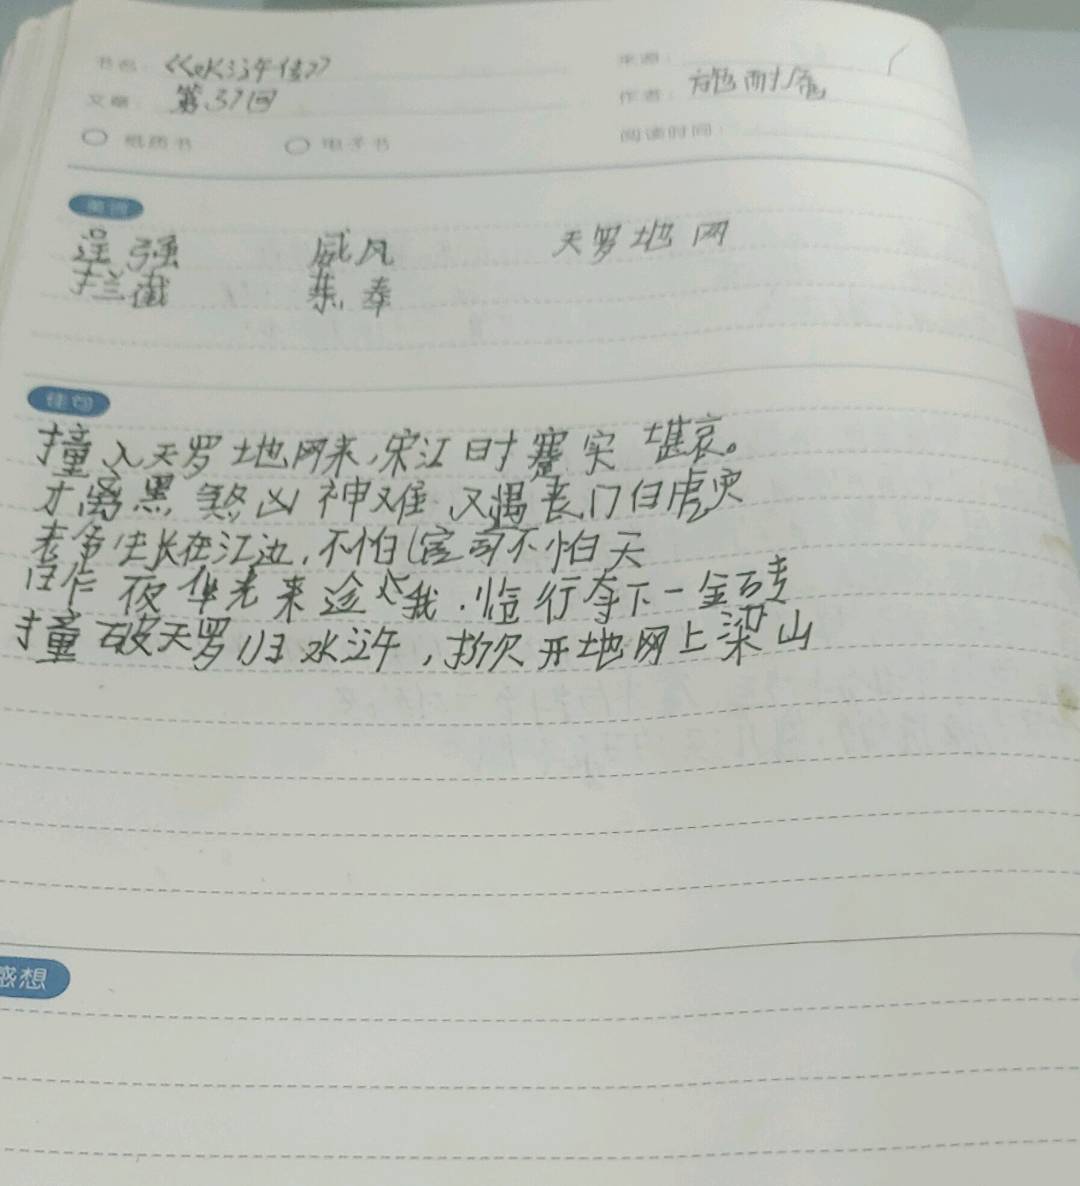 书名 《水浒传》 来源
文章 第37回 作者 施耐庵
纸质书 电子书 阅读时间：
美词
逞强 威风 天罗地网
拦截 恭奉
佳句
撞入天罗地网来，宋江时蹇实堪哀。
才离黑煞凶神难 又遇丧门白虎灾
老爷生长在江边，不怕官司不怕天
昨夜华光来 我．临行夺下一金砖
撞破天罗归水浒，掀开地网上梁山
感想